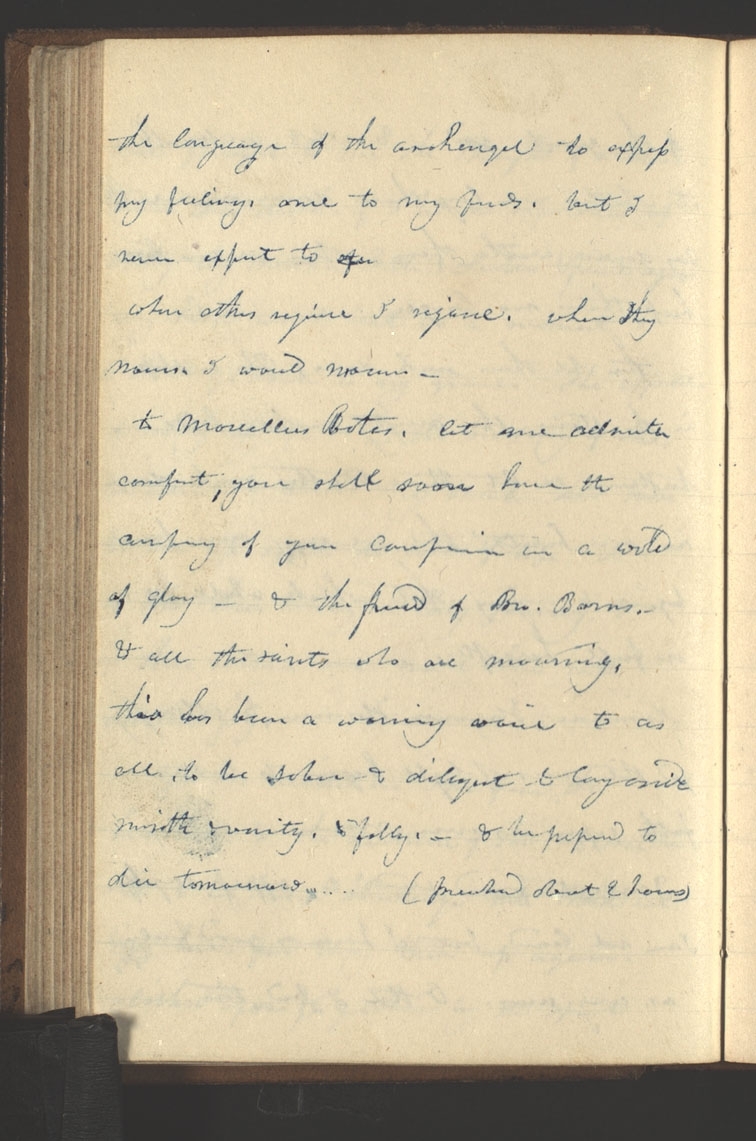 the language of the archangel to express
my feelings. once to my frnds. but I
never expect to
when others rejoice I rejoice. when they
mourn I would mourn —
to Marcellus Bates. let me admister
comfort, you shall soon have the
company of your companion in a world
of glory — & the friend of Bro. Barns. —
& all the saints who are mourning.
this has been a warning voice to us
all. to be sober & diligent & lay aside
mirth & vanity. & folly. — & be prepared to
die tomorrow..... (preached about 2 hours)